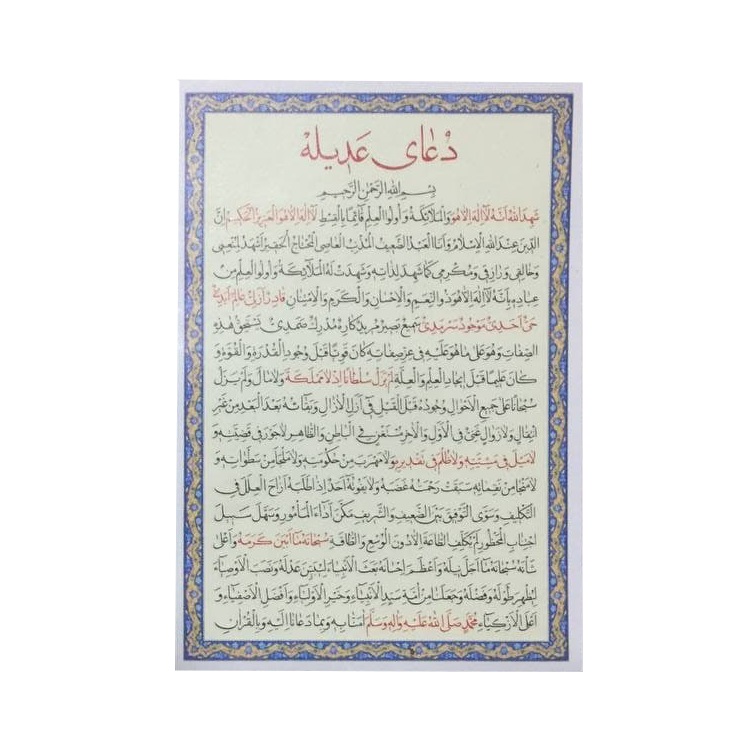 دُعٰای عَدیلَه
بِسْمِ اللهِ الرَّحْمٰنِ الرَّحیمِ
شَهِدَ اللهُ اَنَّهُ لٰا اِلٰهَ اِلّٰا هُوَ وَ الْمَلٰائِکَةُ وَ اُولُوا الْعِلْمِ قٰائِمًا بِالْقِسْطِ لٰا اِلٰهَ اِلّٰا هُوَ الْعَزیزُ الْحَکیمُ اِنَّ
الدّینَ عِنْدَ اللهِ الْاِسْلٰامُ وَ اَنَا الْعَبْدُ الضَّعیفُ الْمُذْنِبُ الْعٰاصِی الْمُحْتٰاجُ الْحَقیرُ اَشْهَدُ لِمُنْعِمی
وَ خٰالِقی وَ رٰازِقی وَ مُکْرِمی کَمٰا شَهِدَ لِذٰاتِهِ وَ شَهِدَتْ لَهُ الْمَلٰائِکَةُ وَ اُولُوا الْعِلْمِ مِنْ
عِبٰادِهِ بِاَنَّهُ لٰا اِلٰهَ اِلّٰا هُوَ ذُو النِّعَمِ وَ الْاِحْسٰانِ وَ الْکَرَمِ وَ الْاِمْتِنٰانِ قٰادِرٌ اَزَلِیٌّ عٰالِمٌ اَبَدِیٌّ
حَیٌّ اَحَدِیٌّ مَوْجُودٌ سَرْمَدِیٌّ سَمیعٌ بَصیرٌ مُریدٌ کٰارِهٌ مُدْرِکٌ صَمَدِیٌّ یَسْتَحِقُّ هٰذِهِ
الصِّفٰاتِ وَ هُوَ عَلیٰ مٰا هُوَ عَلَیْهِ فی عِزِّ صِفٰاتِهِ کٰانَ قَوِیًّا قَبْلَ وُجُودِ الْقُدْرَةِ وَ الْقُوَّةِ وَ
کٰانَ عَلیمًا قَبْلَ ایجٰادِ الْعِلْمِ وَ الْعِلَّةِ لَمْ یَزَلْ سُلْطٰانًا اِذْ لٰا مَمْلَکَةَ وَ لٰا مٰالَ وَ لَمْ یَزَلْ
سُبْحٰانًا عَلیٰ جَمیعِ الْاَحْوٰالِ وُجُودُهُ قَبْلَ الْقَبْلِ فی اَزَلِ الْاٰزٰالِ وَ بَقٰائُهُ بَعْدَ الْبَعْدِ مِنْ غَیْرِ
انْتِقٰالٍ وَ لٰا زَوٰالٍ غَنِیٌّ فِی الْاَوَّلِ وَ الْاٰخِرِ مُسْتَغْنٍ فِی الْبٰاطِنِ وَ الظّٰاهِرِ لٰا جَوْرَ فی قَضِیَّتِهِ وَ
لٰا مَیْلَ فی مَشِیَّتِهِ وَ لٰا ظُلْمَ فی تَقْدیرِهِ وَ لٰا مَهْرَبَ مِنْ حُکُومَتِهِ وَ لٰا مَلْجَاَ مِنْ سَطَوٰاتِهِ وَ
لٰا مَنْجٰا مِنْ نَقِمٰاتِهِ سَبَقَتْ رَحْمَتُهُ غَضَبَهُ وَ لٰا یَفُوتُهُ اَحَدٌ اِذٰا طَلَبَهُ اَزٰاحَ الْعِلَلَ فِی
التَّکْلیفِ وَ سَوَّی التَّوْفیقَ بَیْنَ الضَّعیفِ وَ الشَّریفِ مَکَّنَ اَدٰاءَ الْمَأْمُورِ وَ سَهَّلَ سَبیلَ
اجْتِنٰابِ الْمَحْظُورِ لَمْ یُکَلِّفِ الطّٰاعَةَ اِلّٰا دُونَ الْوُسْعِ وَ الطّٰاقَةِ سُبْحٰانَهُ مٰا اَبْیَنَ کَرَمَهُ وَ اَعْلیٰ
شَأْنَهُ سُبْحٰانَهُ مٰا اَجَلَّ نَیْلَهُ وَ اَعْظَمَ اِحْسٰانَهُ بَعَثَ الْاَنْبِیٰاءَ لِیُبَیِّنَ عَدْلَهُ وَ نَصَبَ الْاَوْصِیٰاءَ
لِیُظْهِرَ طَوْلَهُ وَ فَضْلَهُ وَ جَعَلَنٰا مِنْ اُمَّةِ سَیِّدِ الْاَنْبِیٰاءِ وَ خَیْرِ الْاَوْلِیٰاءِ وَ اَفْضَلِ الْاَصْفِیٰاءِ وَ
اَعْلَی الْاَزْکِیٰاءِ مُحَمَّدٍ صَلَّی اللهُ عَلَیْهِ وَ اٰلِهِ وَ سَلَّمَ اٰمَنّٰا بِهِ وَ بِمٰا دَعٰانٰا اِلَیْهِ وَ بِالْقُرْاٰنِ